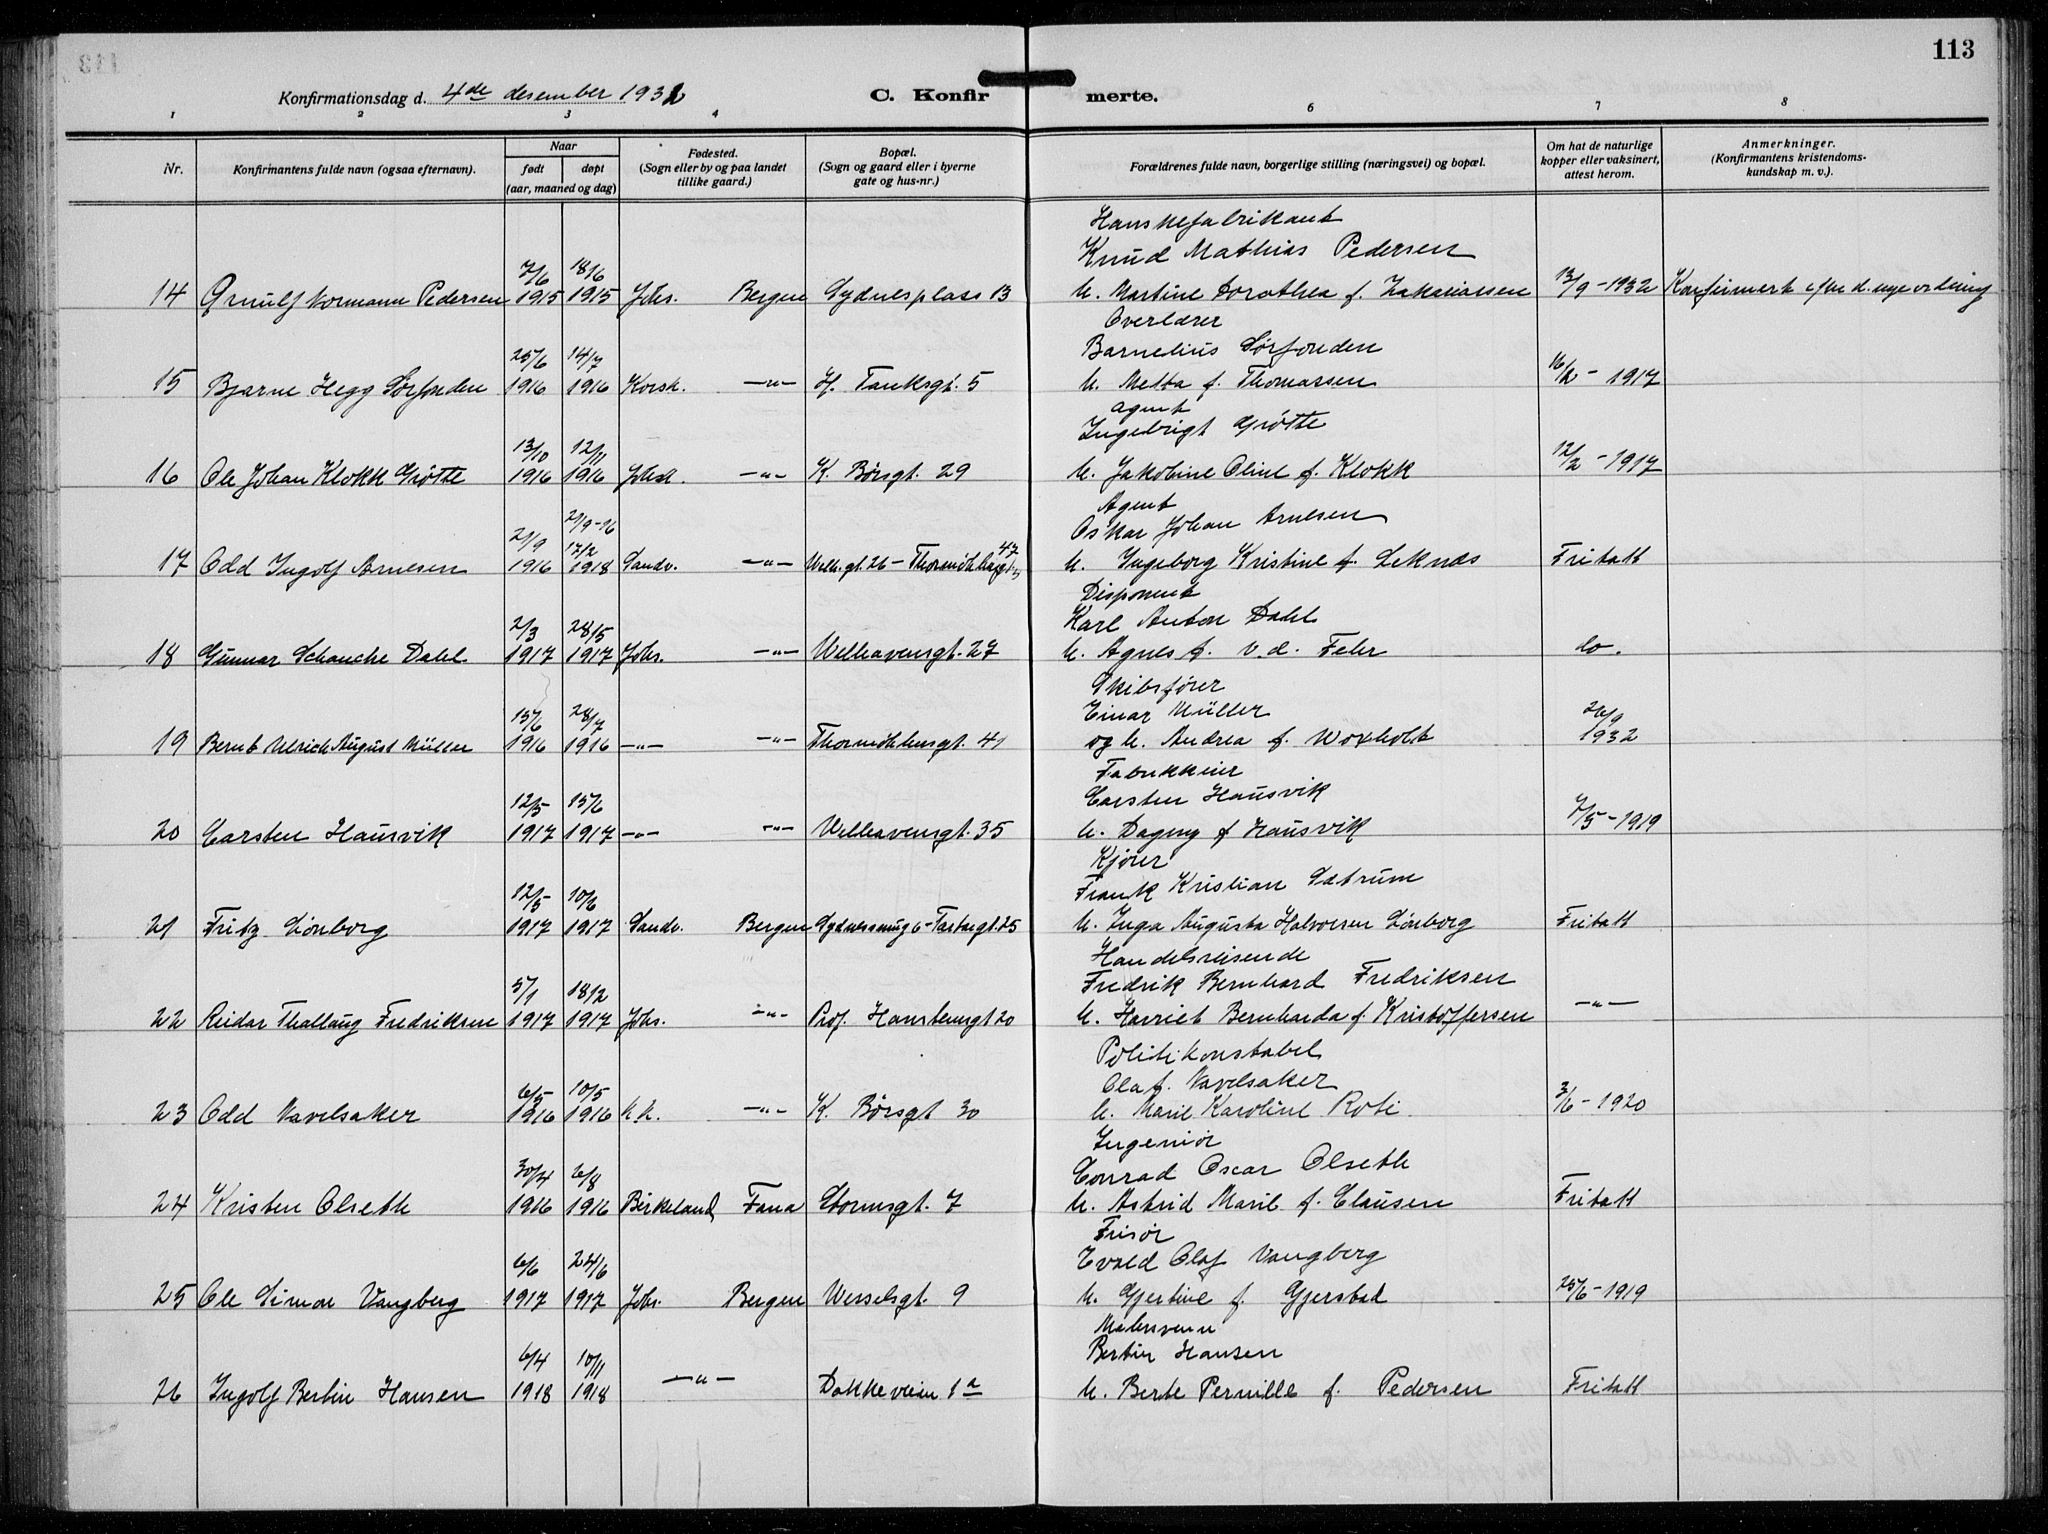 113
Konfirmationsdag d. 4de desember 1932
C. Konfirmerte.
1 2 3 4 6 7 8
Nr.
Konfirmantens fulde navn (ogsaa efternavn).
Naar
født døpt
(aar, maaned og dag)
Fødested.
(Sogn eller by og paa landet
tillike gaard.)
Bopæl.
(Sogn og gaard eller i byerne
gate og hus-nr.)
Forældrenes fulde navn, borgerlige stilling (næringsvei) og bopæl.
Om hat de naturlige
kopper eller vaksinert,
attest herom.
Anmerkninger.
(Konfirmantens kristendoms-
kundskap m. v.).
Hanskefabrikant
Knud Mathias Pedersen
7/6 18/6
14 Arnulf Normann Pedersen 1915 1915 Johs. Bergen Sydnesplass 13 h. Martine Dorothea f. Zakariassen 13/9-1932 Konfirmert efter d. nye ordning
Overlærer
Barnelius Sørfonden
25/6 14/7
15 Bjarne Hegg Sørfonden 1916 1916 Korsk. -"- H. Tanksgt. 5 h. Metta f. Thomassen 16/2-1917
Agent
Ingebrigt Grøtte
13/10 12/11
16 Ole Johan Klokk Grøtte 1916 1916 Johs. -"- K. Børsgt. 29 h. Jakobine Oline f. Klokk 12/2-1917
Agent
Oskar Johan Arnesen
2/9 21/9-16 17/2 47
17 Odd Ingolf Arnesen 1916 1918 Sandv. -"- Welh.gt. 26 - h. Ingeborg Kristine f. Leknes Fritatt
Disponent
Karl Anton Dahl
2/3 28/5
18 Gunnar Schanche Dahl 1917 1917 Johs. -"- Welhavensgt. 27 h. Agnes f. v.d. Fehr do.
Skibsfører
Einar Müller
15/6 28/7 26/9
19 Bernt Ulrich August Müller 1916 1916 -"- -"- Thormöhlensgt. 41 og h. Andrea f. Woxholt 1932
Fabrikkeier
Carsten Hausvik
12/5 15/6
20 Carsten Hausvik 1917 1917 -"- -"- Welhavensgt. 35 h. Dagny f Hausvik 7/5-1919
Kjører
Frank Kristian Sætrum
12/5 10/6
21 Fritz Lönborg 1917 1917 Sandv. Bergen h. Inga Augusta Halvorsen Lönborg Fritatt
Handelsreisende
Fredrik Bernhard Fredriksen
5/1 18/2
22 Reidar Thallaug Fredriksen 1917 1917 Johs. -"- Prof. Hansteensgt 20 h. Harriet Bernharda f. Kristoffersen -"-
Politikonstabel
Olaf. Vavelsaker
6/5 10/5
23 Odd Vavelsaker 1916 1916 k.k. -"- K. Børsgt 30 h. Marie Karoline Roti 3/6-1920
Ingeniør
Conrad Oscar Olseth
30/4 6/8
24 Kristen Olseth 1916 1916 Birkeland, Fana Stormsgt. 7 h. Astrid Marie f. Clausen Fritatt
Frisør
Evald Olaf Vangberg
6/6 24/6
25 Ole Simon Vangberg 1917 1917 Johs. Bergen Wesselsgt. 9 h. Gjertine f. Gjersbad 25/6-1919
Malersvenn
Bertin Hansen
6/4 10/11
26 Ingolf Bertin Hansen 1918 1918 -"- Dokkeveien 1a h. Berte Pernille f. Pedersen Fritatt